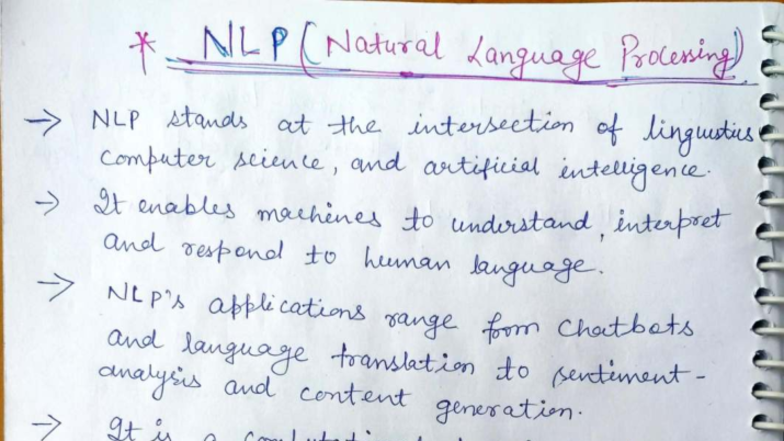 * NLP (Natural Language Processing)
→ NLP stands at the intersection of linguistics
computer science, and artificial intelligence.
→ It enables machines to understand, interpret
and respond to human language.
→ NLP's applications range from chatbots
and language translation to sentiment-
analysis and content generation.
→ It is a